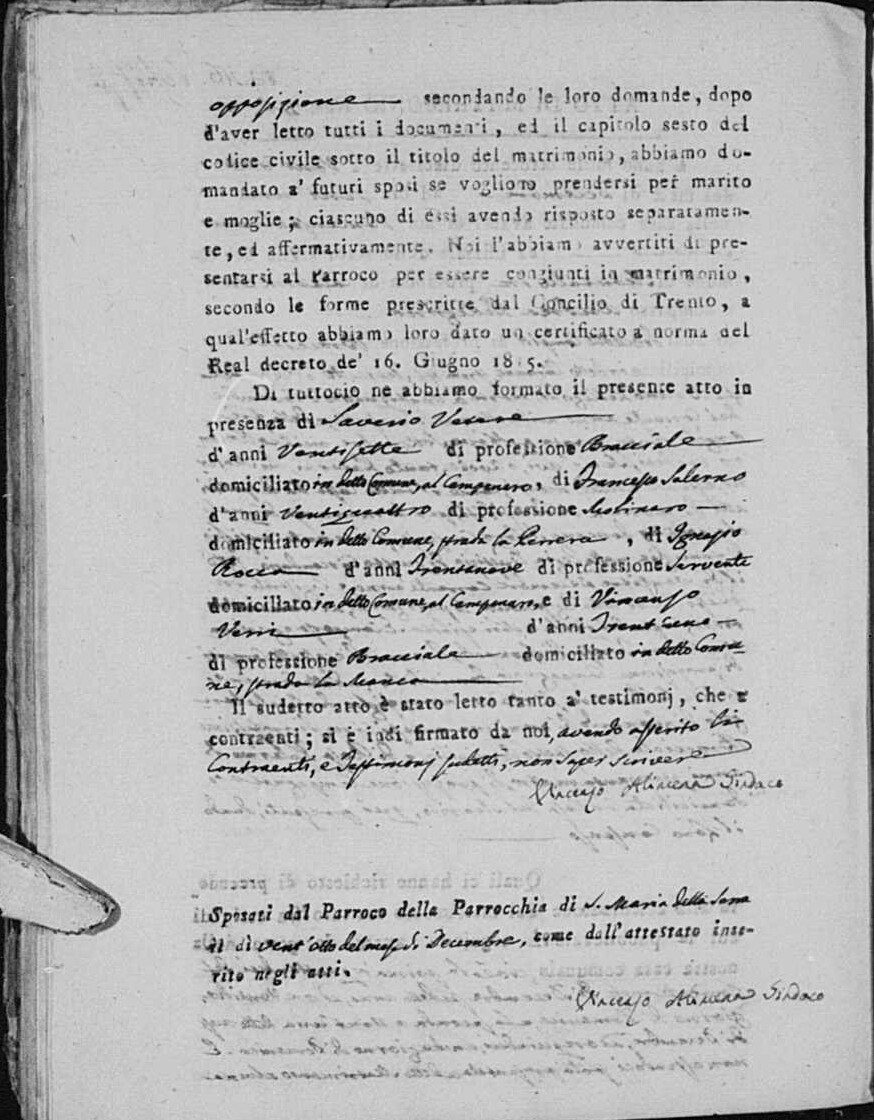 opposizione secondando le loro domande, dopo
d'aver letto tutti i documenti, ed il capitolo sesto del
codice civile sotto il titolo del matrimonio, abbiamo do-
mandato a' futuri sposi se vogliono prendersi per marito
e moglie; ciascuno di essi avendo risposto separatamen-
te, ed affermativamente. Noi l'abbiamo avvertiti di pre-
sentarsi al Parroco per essere congiunti in matrimonio,
secondo le forme prescritte dal Concilio di Trento, a
qual'effetto abbiamo loro dato un certificato a norma del
Real decreto de' 16. Giugno 1815.
Di tuttociò ne abbiamo formato il presente atto in
presenza di Saverio
d'anni Ventisette di professione Bracciale
domiciliato in detto Comune, al Campanaro, di Francesco Salerno
d'anni Ventiquattro di professione Molinaro
domiciliato in detto Comune, strada la , di Ignazio
Rocco d'anni Trentanove di professione Servente
domiciliato in detto Comune, al Campanaro, e di Vincenzo
d'anni Trent
di professione Bracciale domiciliato in detto Comu-
ne, strada la Manca
Il sudetto atto è stato letto tanto a' testimonj, che a'
contraenti; si è indi firmato da noi, avendo asserito li
Contraenti, e Testimonj sudetti, non saper scrivere
Vincenzo Alimena Sindaco
Sposati dal Parroco della Parrocchia di S. Maria della Serra
il dì vent'otto del mese di Decembre, come dall'attestato inse-
rito negli atti.
Vincenzo Alimena Sindaco